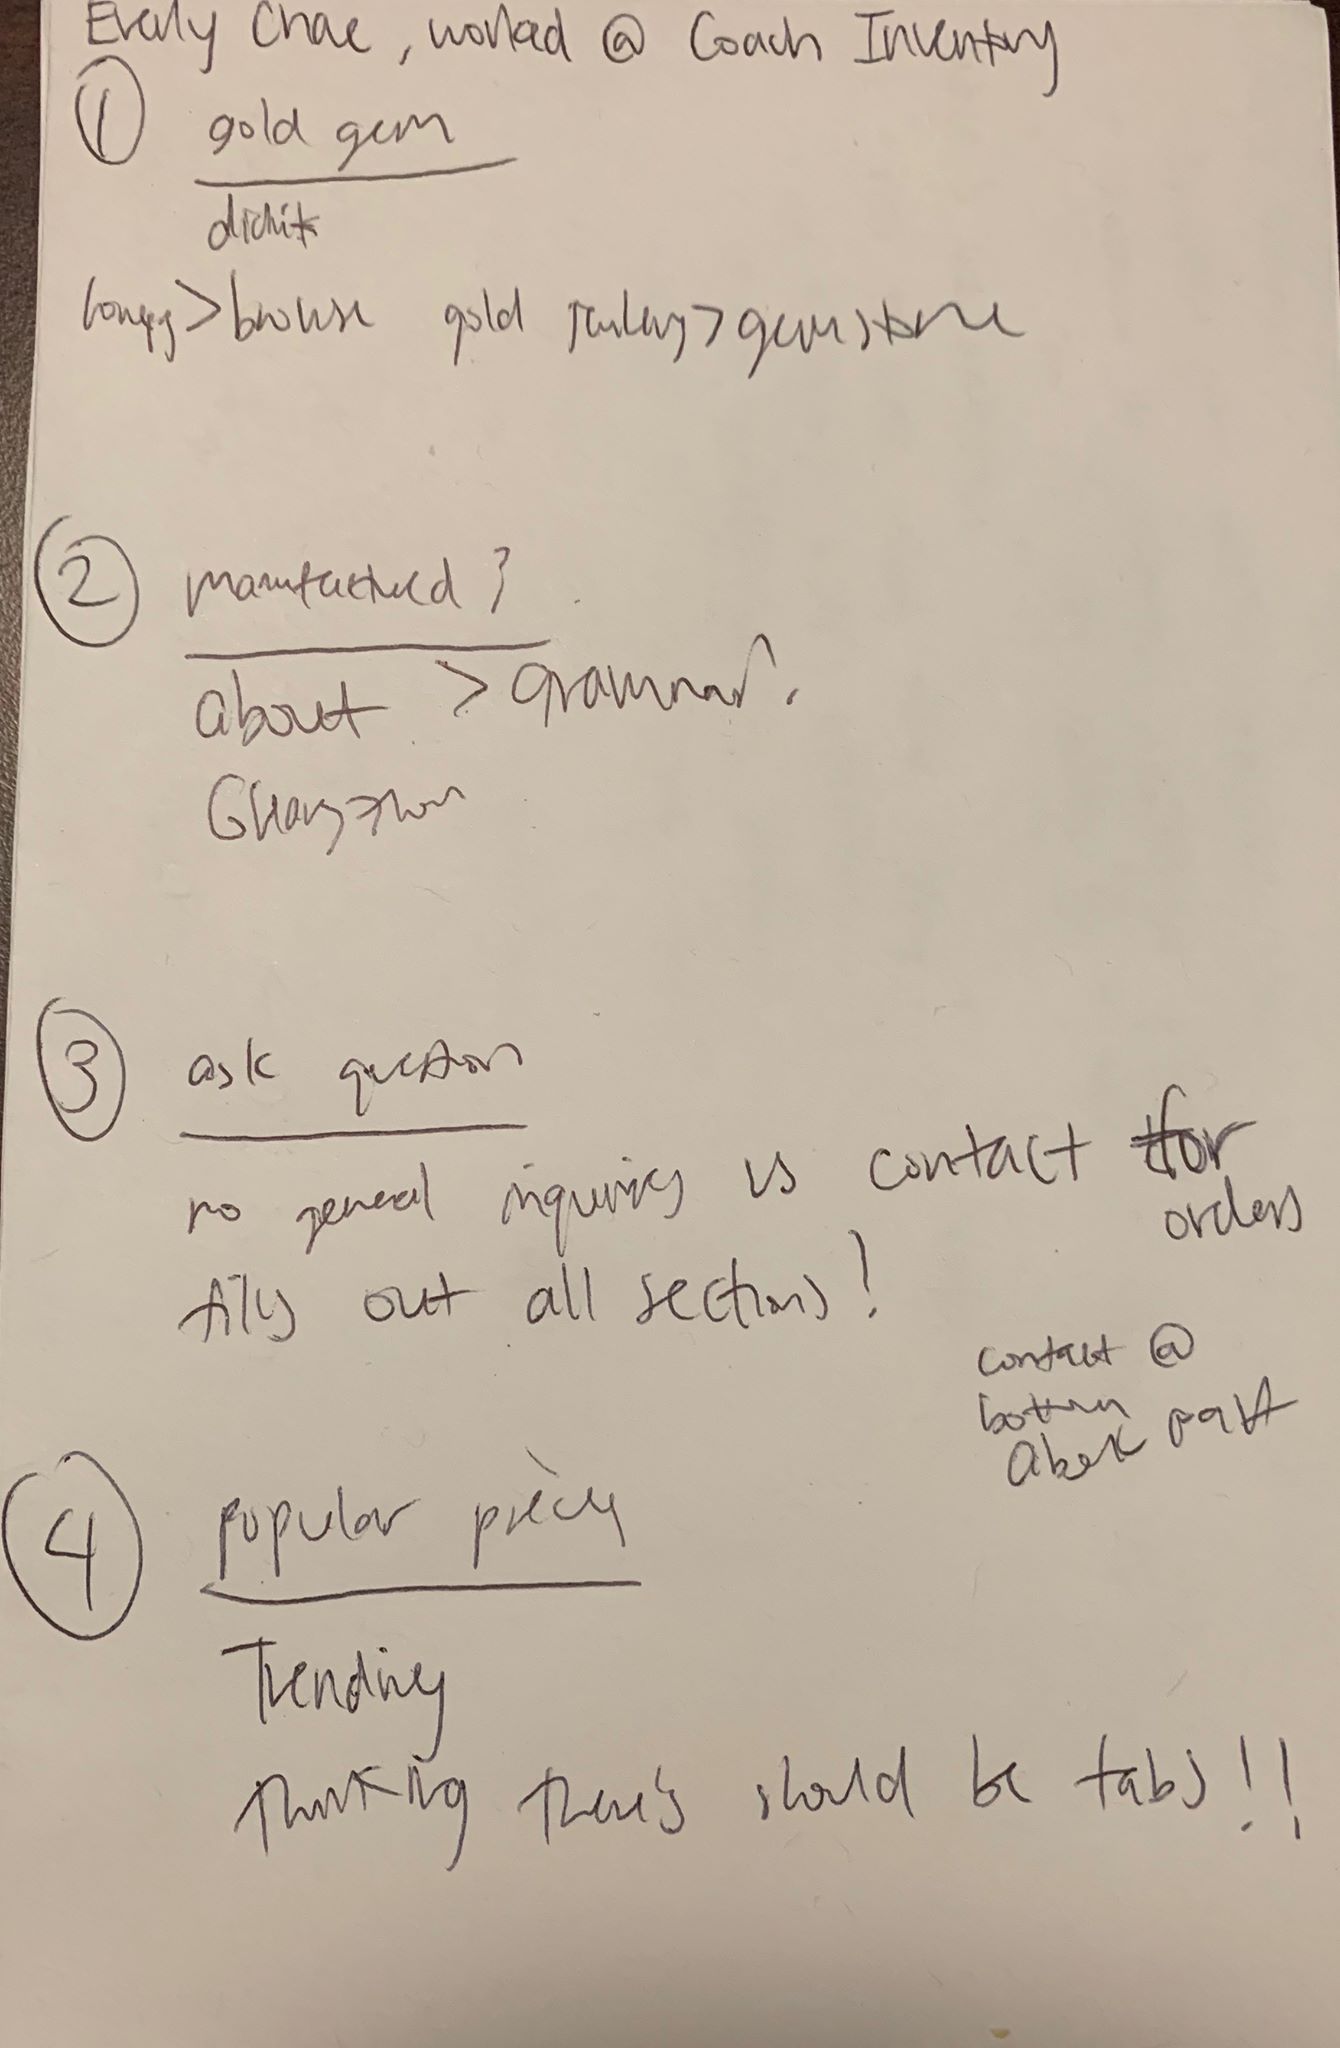 Everly Chae, worked @ Coach Inventory
① gold gem
> browse gold jewlery > gemstone
② manufactured?
about > grammar.
③ ask question
no general inquiries vs contact for
orders
fills out all sections!
contact @
bottom
about part
④ popular pieces
Trending
thinking there's should be tabs!!